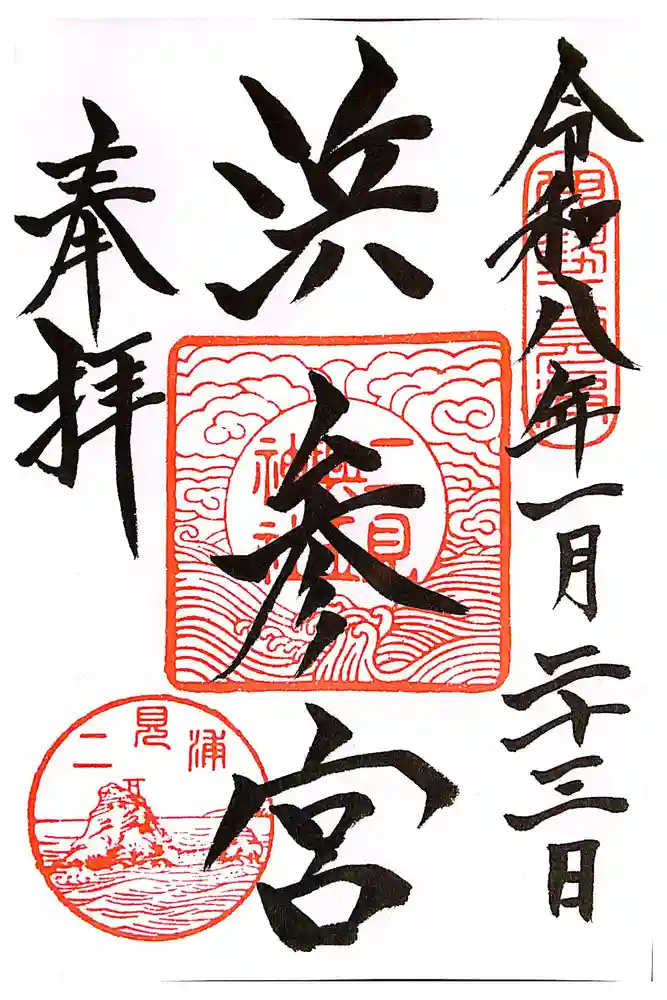 令和八年一月二十三日
浜参宮
二見
興玉
神社
奉拝
二見浦